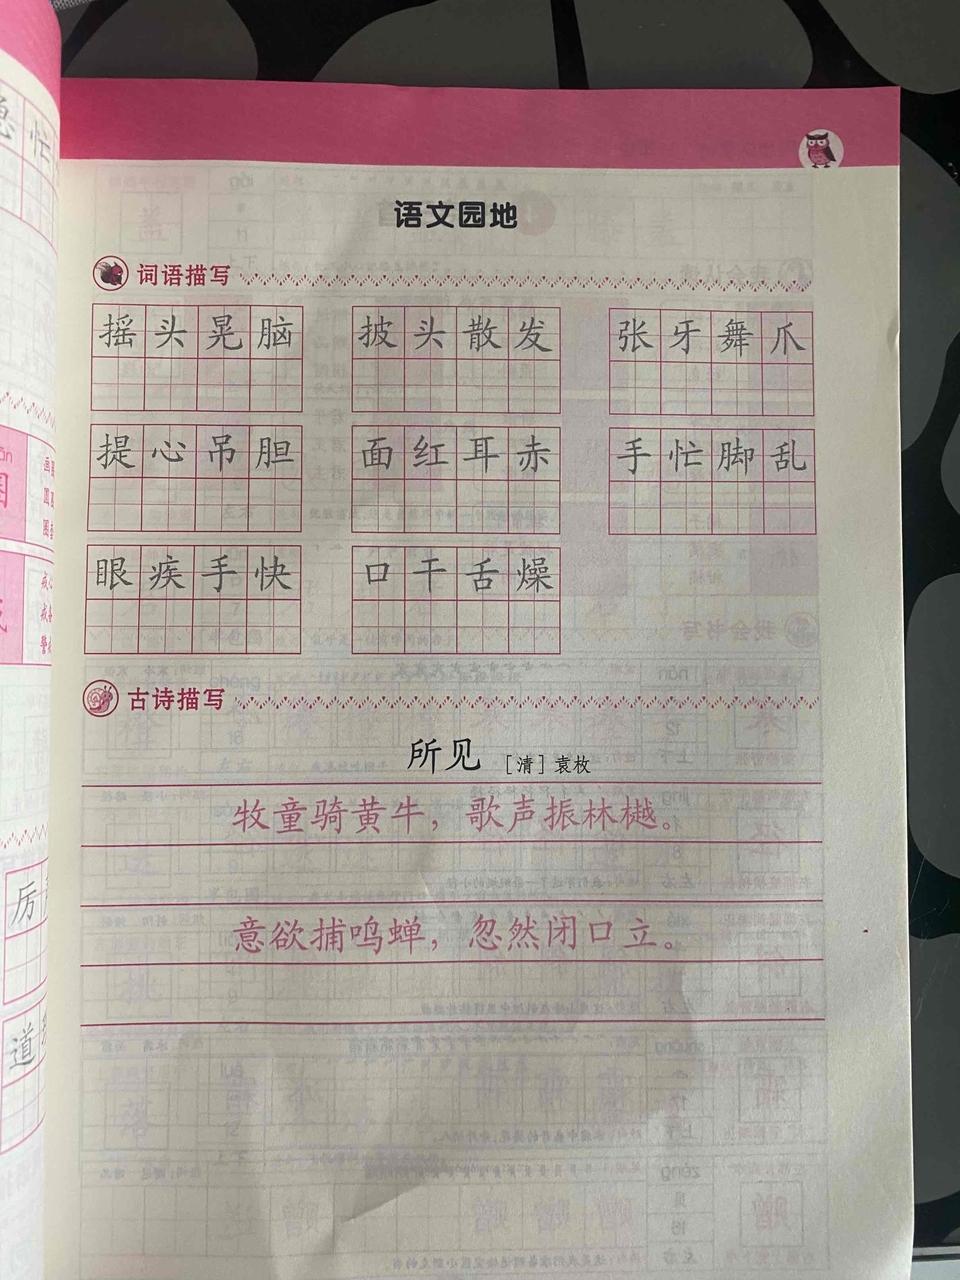 语文园地
词语描写
摇头晃脑 披头散发 张牙舞爪
提心吊胆 面红耳赤 手忙脚乱
眼疾手快 口干舌燥
古诗描写
所见 [清]袁枚
牧童骑黄牛，歌声振林樾。
意欲捕鸣蝉，忽然闭口立。
忙
厉
道